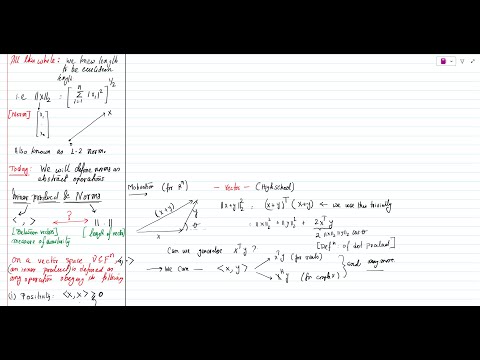 All this while: we knew length
to be euclidean
length
i.e ||x||₂ = [ Σ_{i=1}^{n} |x_i|² ]^{1/2}
[Norm] [ x₁ ⋮ x_n ]
0 x
Also known as L-2 norm.
Today: We will define norms as
abstract operations
Inner product & Norms
< , > ? || · ||
[Relation vectors] [length of vector]
measure of similarity
on a vector space
an inner product is defined as
any operation obeying the following
(1) Positivity: <x, x> ≥ 0
Motivation (for ℝⁿ) — vector — (High school)
(x+y) y x θ
||x+y||₂² = (x+y)ᵀ(x+y) ← we use this trivially
= ||x||₂² + ||y||₂² + 2xᵀy
2 ||x||₂ ||y||₂ cos θ
[Defⁿ of dot product]
Can we generalize xᵀy ?
→ We Care → <x, y> xᵀy (for reals)
xᴴy (for complex)
and any more.